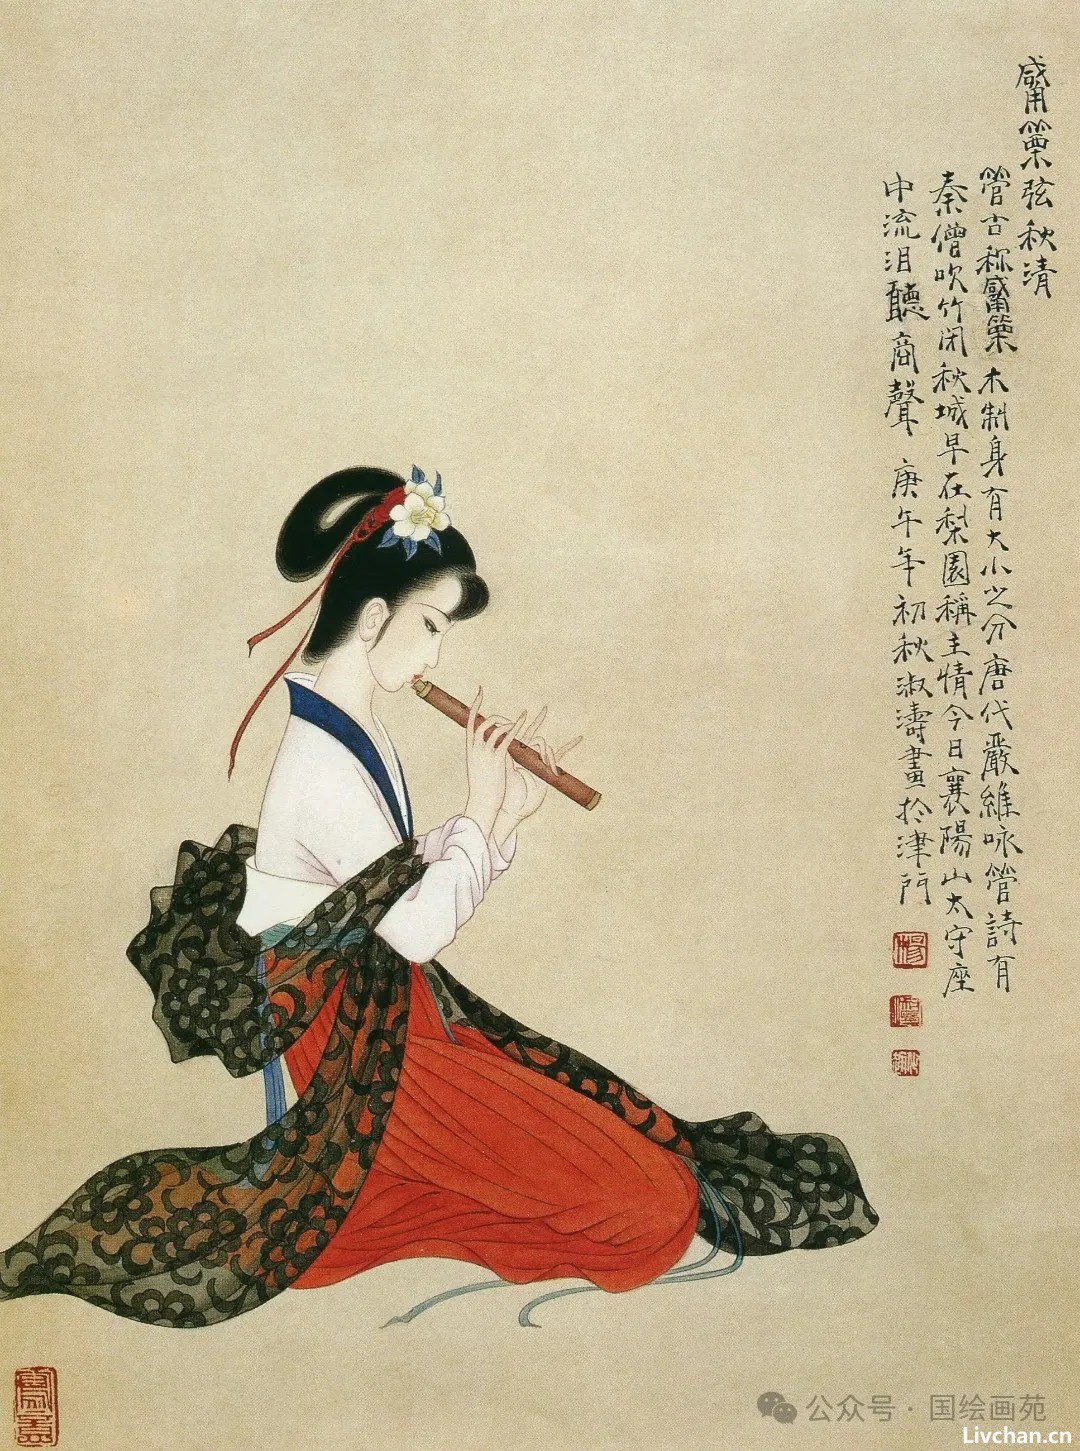 觱篥弦秋清
管古称觱篥木制身有大小之分唐代嚴維咏管詩有
秦僧吹竹闭秋城早在梨園稱主情今日襄陽山太守座
中流泪聽商聲 庚午年初秋淑濤畫於津門
楊
公众号·国绘画苑
Livchan.cn